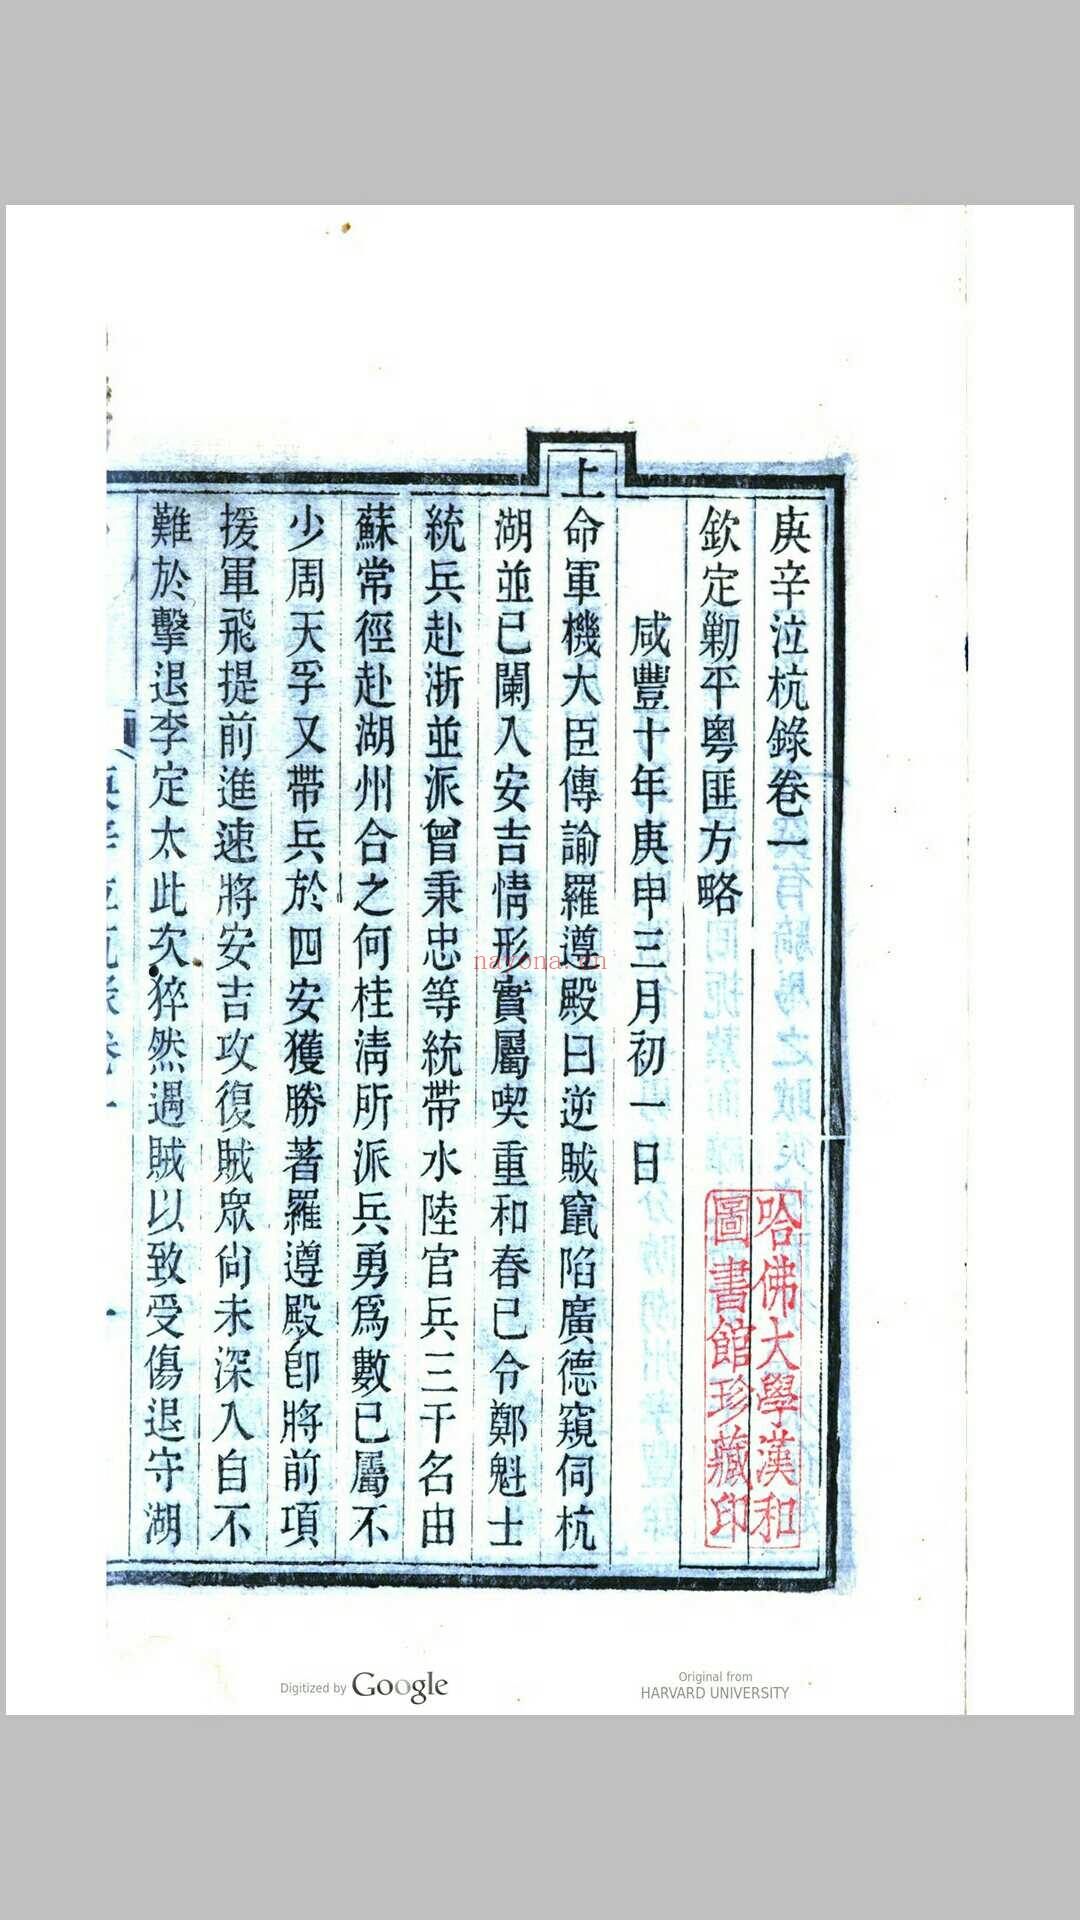 庚辛泣杭錄卷一
欽定勦平粵匪方略
咸豐十年庚申三月初一日
上
命軍機大臣傳諭羅遵殿曰逆賊竄陷廣德窺伺杭
湖並已闌入安吉情形實屬喫重和春已令鄭魁士
統兵赴浙並派曾秉忠等統帶水陸官兵三千名由
蘇常徑赴湖州合之何桂清所派兵勇爲數已屬不
少周天孚又帶兵於四安獲勝著羅遵殿卽將前項
援軍飛提前進速將安吉攻復賊眾尙未深入自不
難於擊退李定太此次猝然遇賊以致受傷退守湖
哈佛大學漢和
圖書館珍藏印
nayona.cn
Digitized by Google
Original from
HARVARD UNIVERSITY